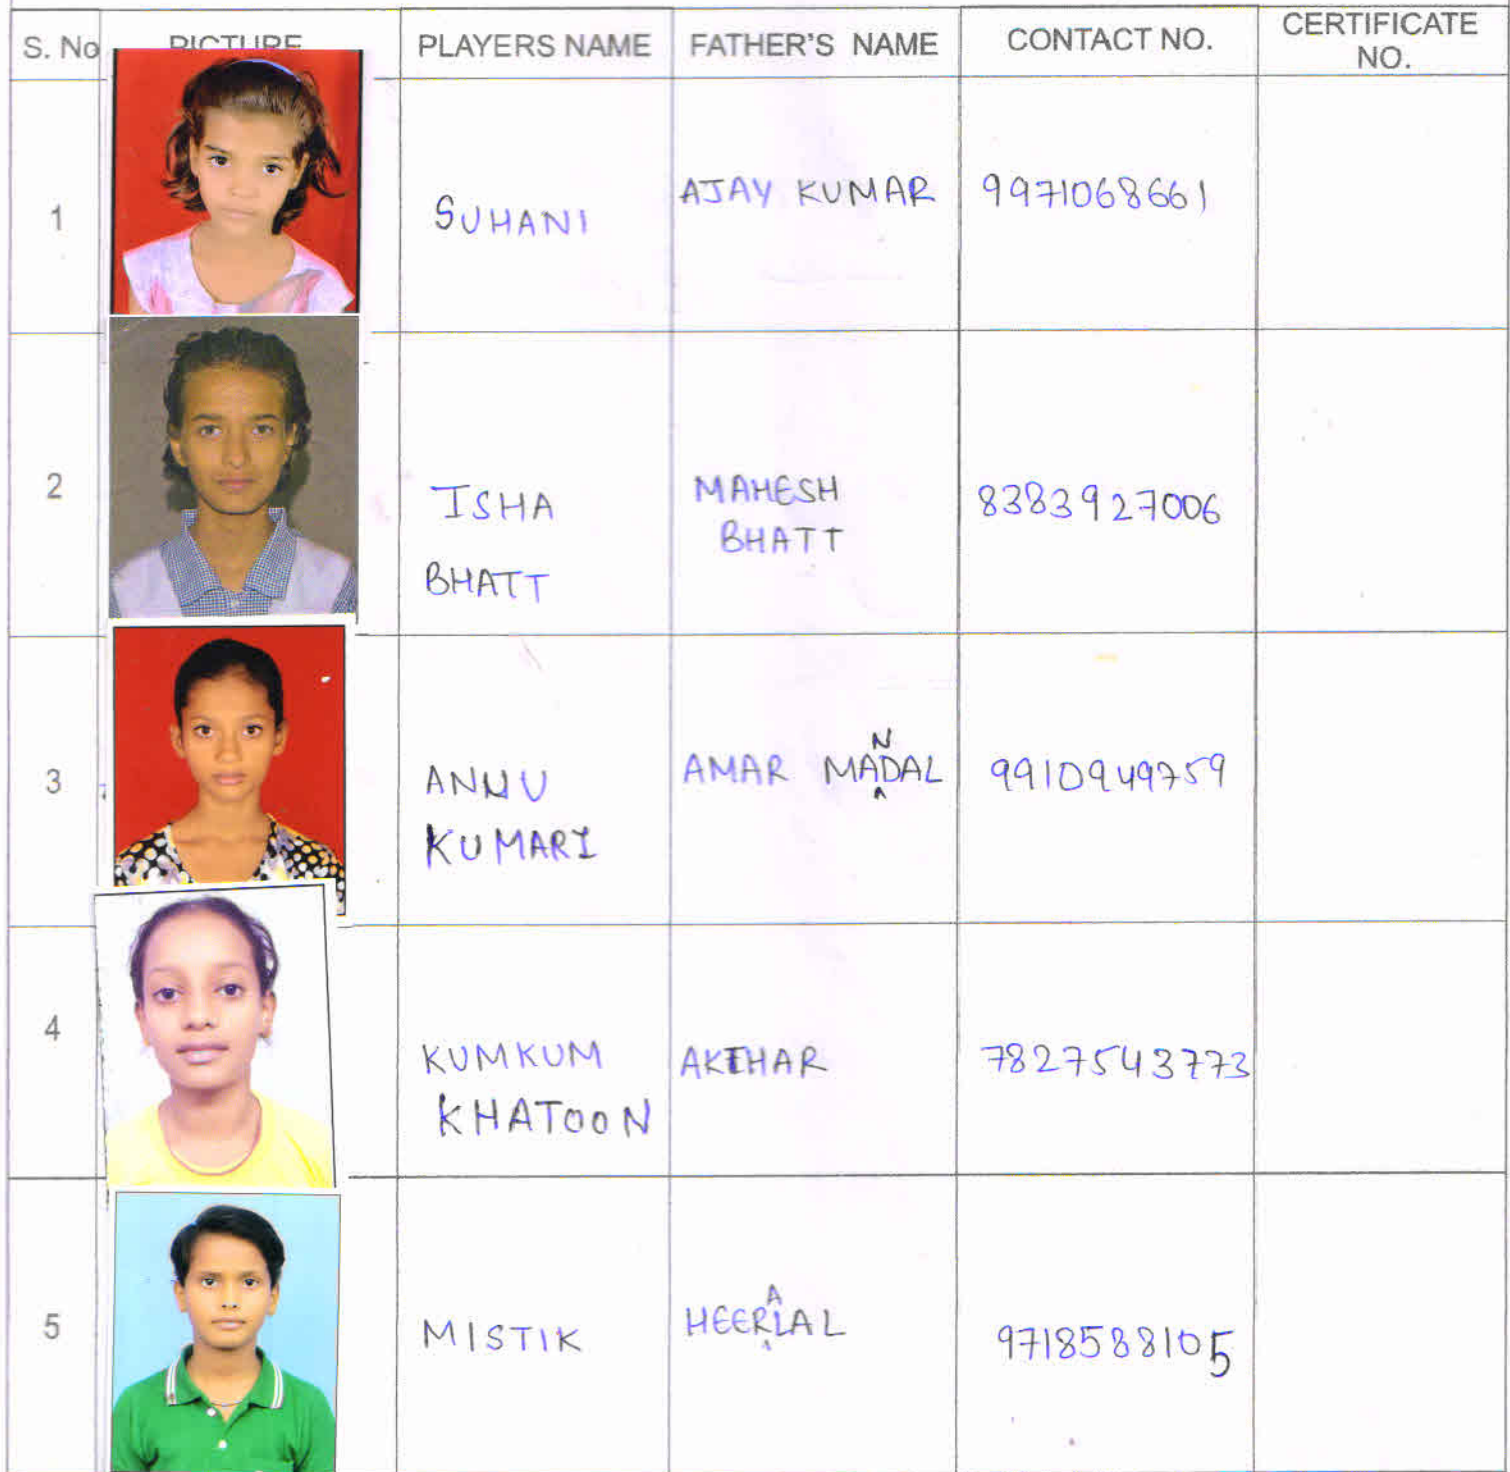 S. No PICTURE PLAYERS NAME FATHER'S NAME CONTACT NO. CERTIFICATE NO.
1 SUHANI AJAY KUMAR 9971068661
2 ISHA BHATT MAHESH BHATT 8383927006
3 ANNU KUMARI AMAR MANDAL 9910949759
4 KUMKUM KHATOON AKTHAR 7827543773
5 MISTIK HEERALAL 9718588105